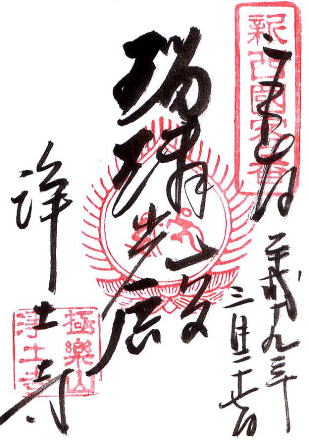 新西國客番
奉拝
平成九年
三月二十七日
瑠璃光殿
浄土寺
極樂山
淨土寺